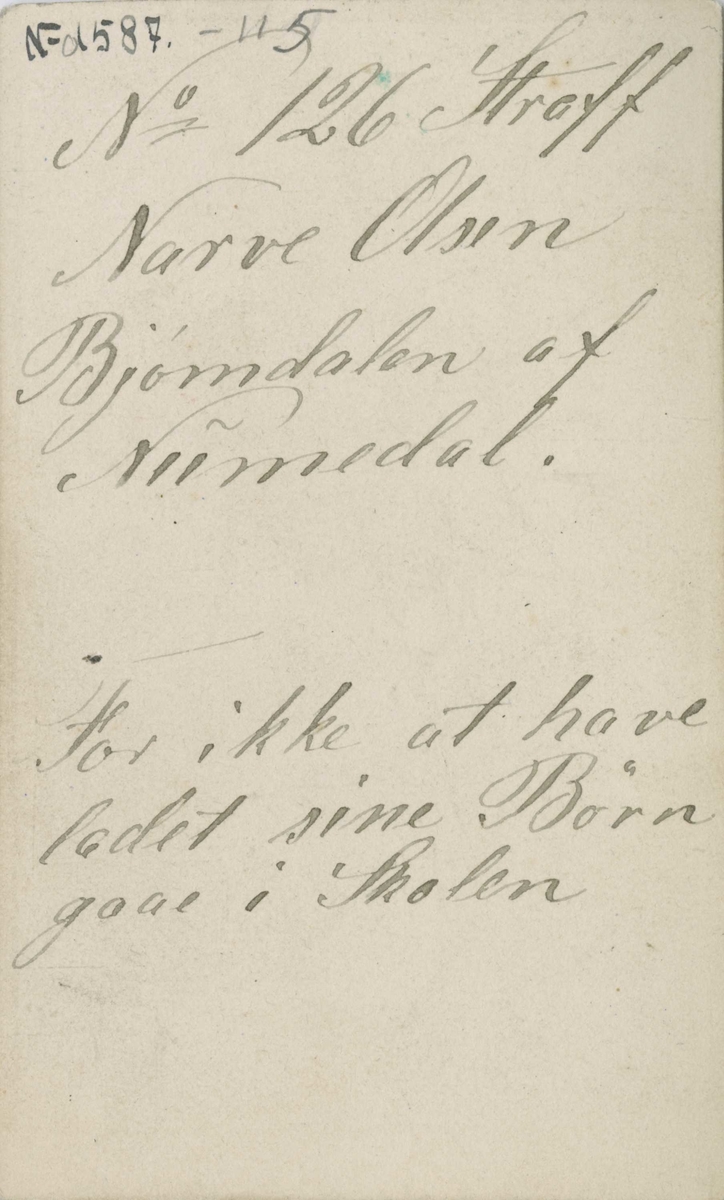 NF d 587. - 115
No 126 Straff
Narve Olsen
Bjórndalen af
Nümedal.
For ikke at have
ladet sine Börn
gaae i Skolen